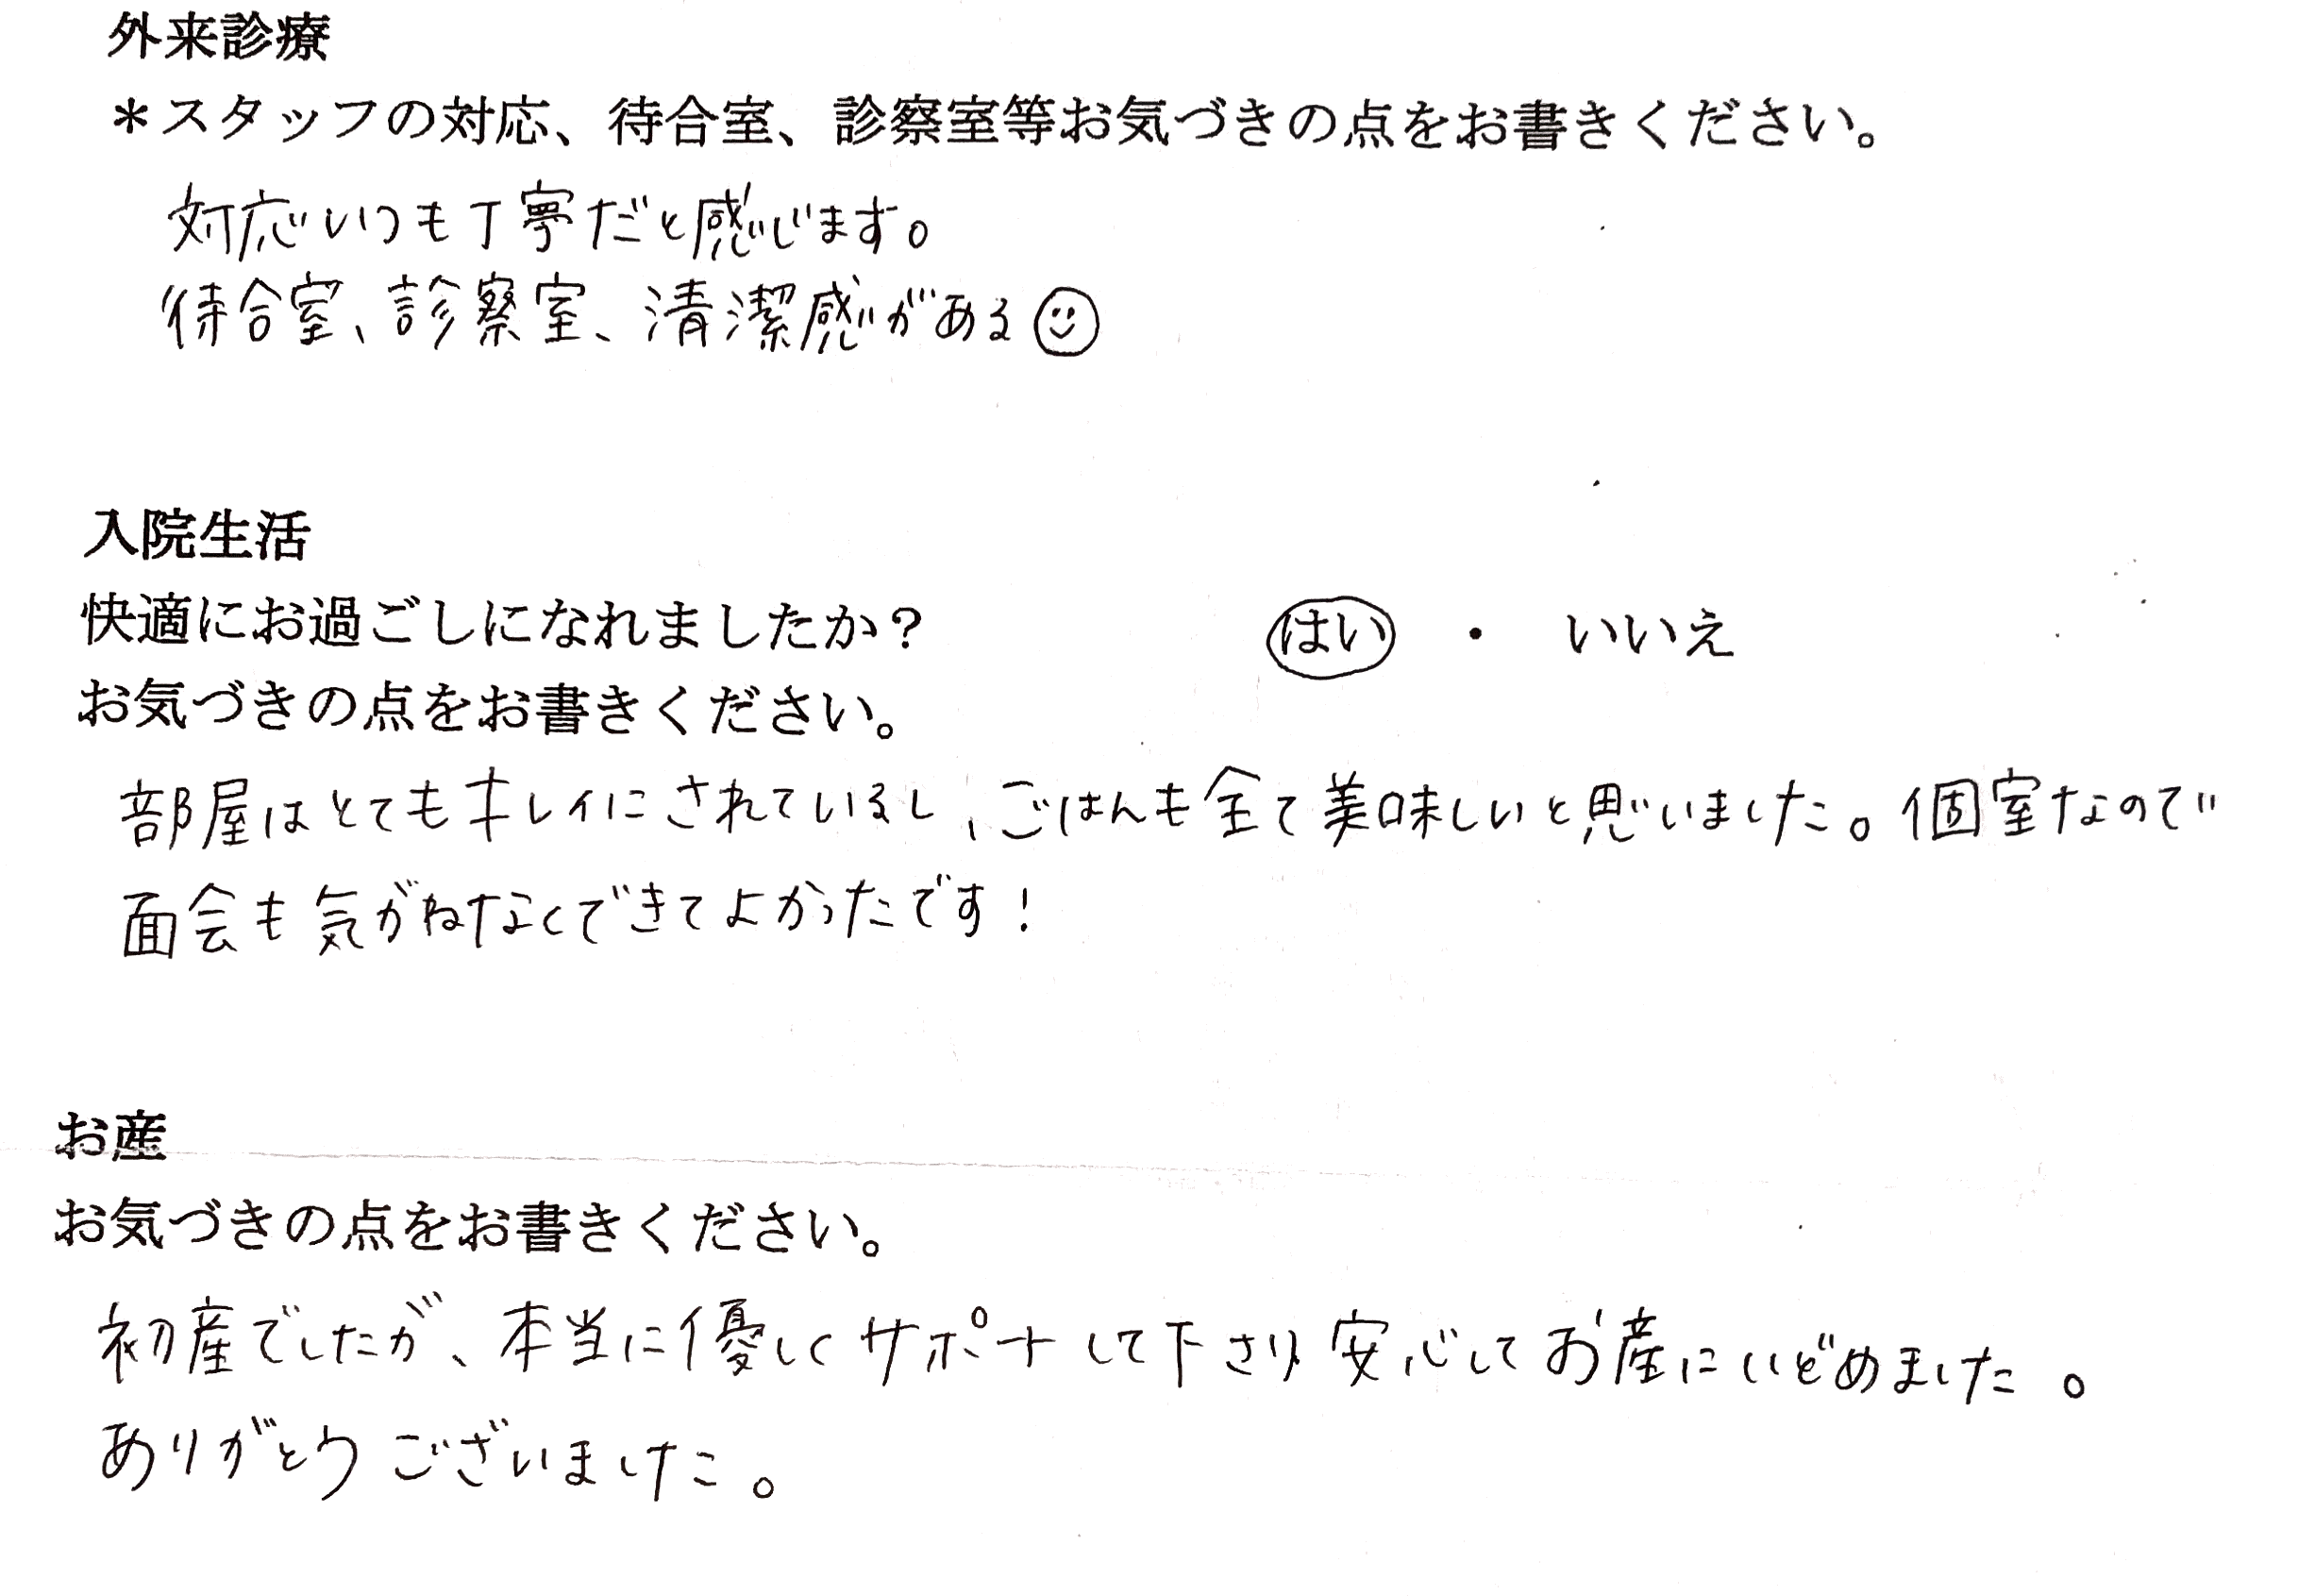 外来診療
＊スタッフの対応、待合室、診察室等お気づきの点をお書きください。
対応いつも丁寧だと感じます。
待合室、診察室、清潔感がある☺
入院生活
快適にお過ごしになれましたか？ はい ・ いいえ
お気づきの点をお書きください。
部屋はとてもキレイにされているし、ごはんも全て美味しいと思いました。個室なので
面会も気がねなくできてよかったです！
お産
お気づきの点をお書きください。
初産でしたが、本当に優しくサポートして下さり安心してお産にいどめました。
ありがとうございました。